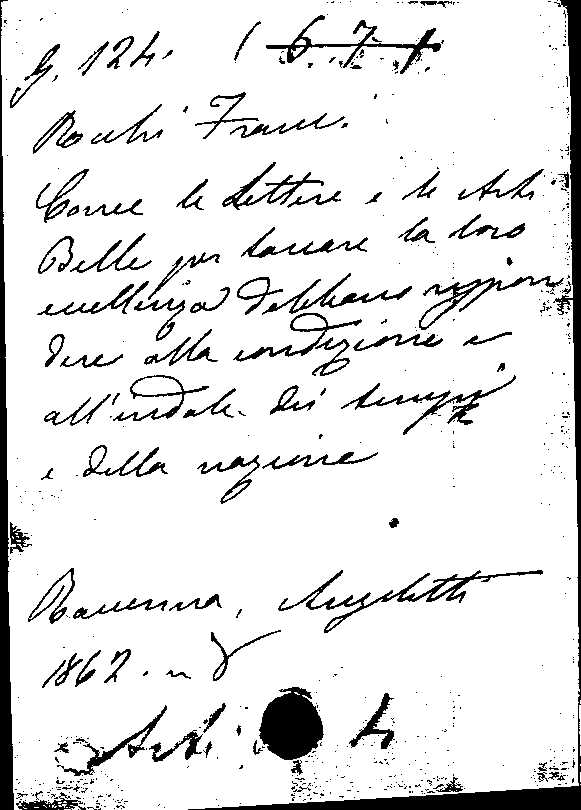 G. 124. (6. 7.
Rocchi Franc.
Come le Lettere e le Arti
Belle per toccare la loro
eccellenza debbano rispon
dere alla condizione e
all'indole dei tempi
e della nazione
Ravenna, Angeletti
1862. in 8
Arti 4